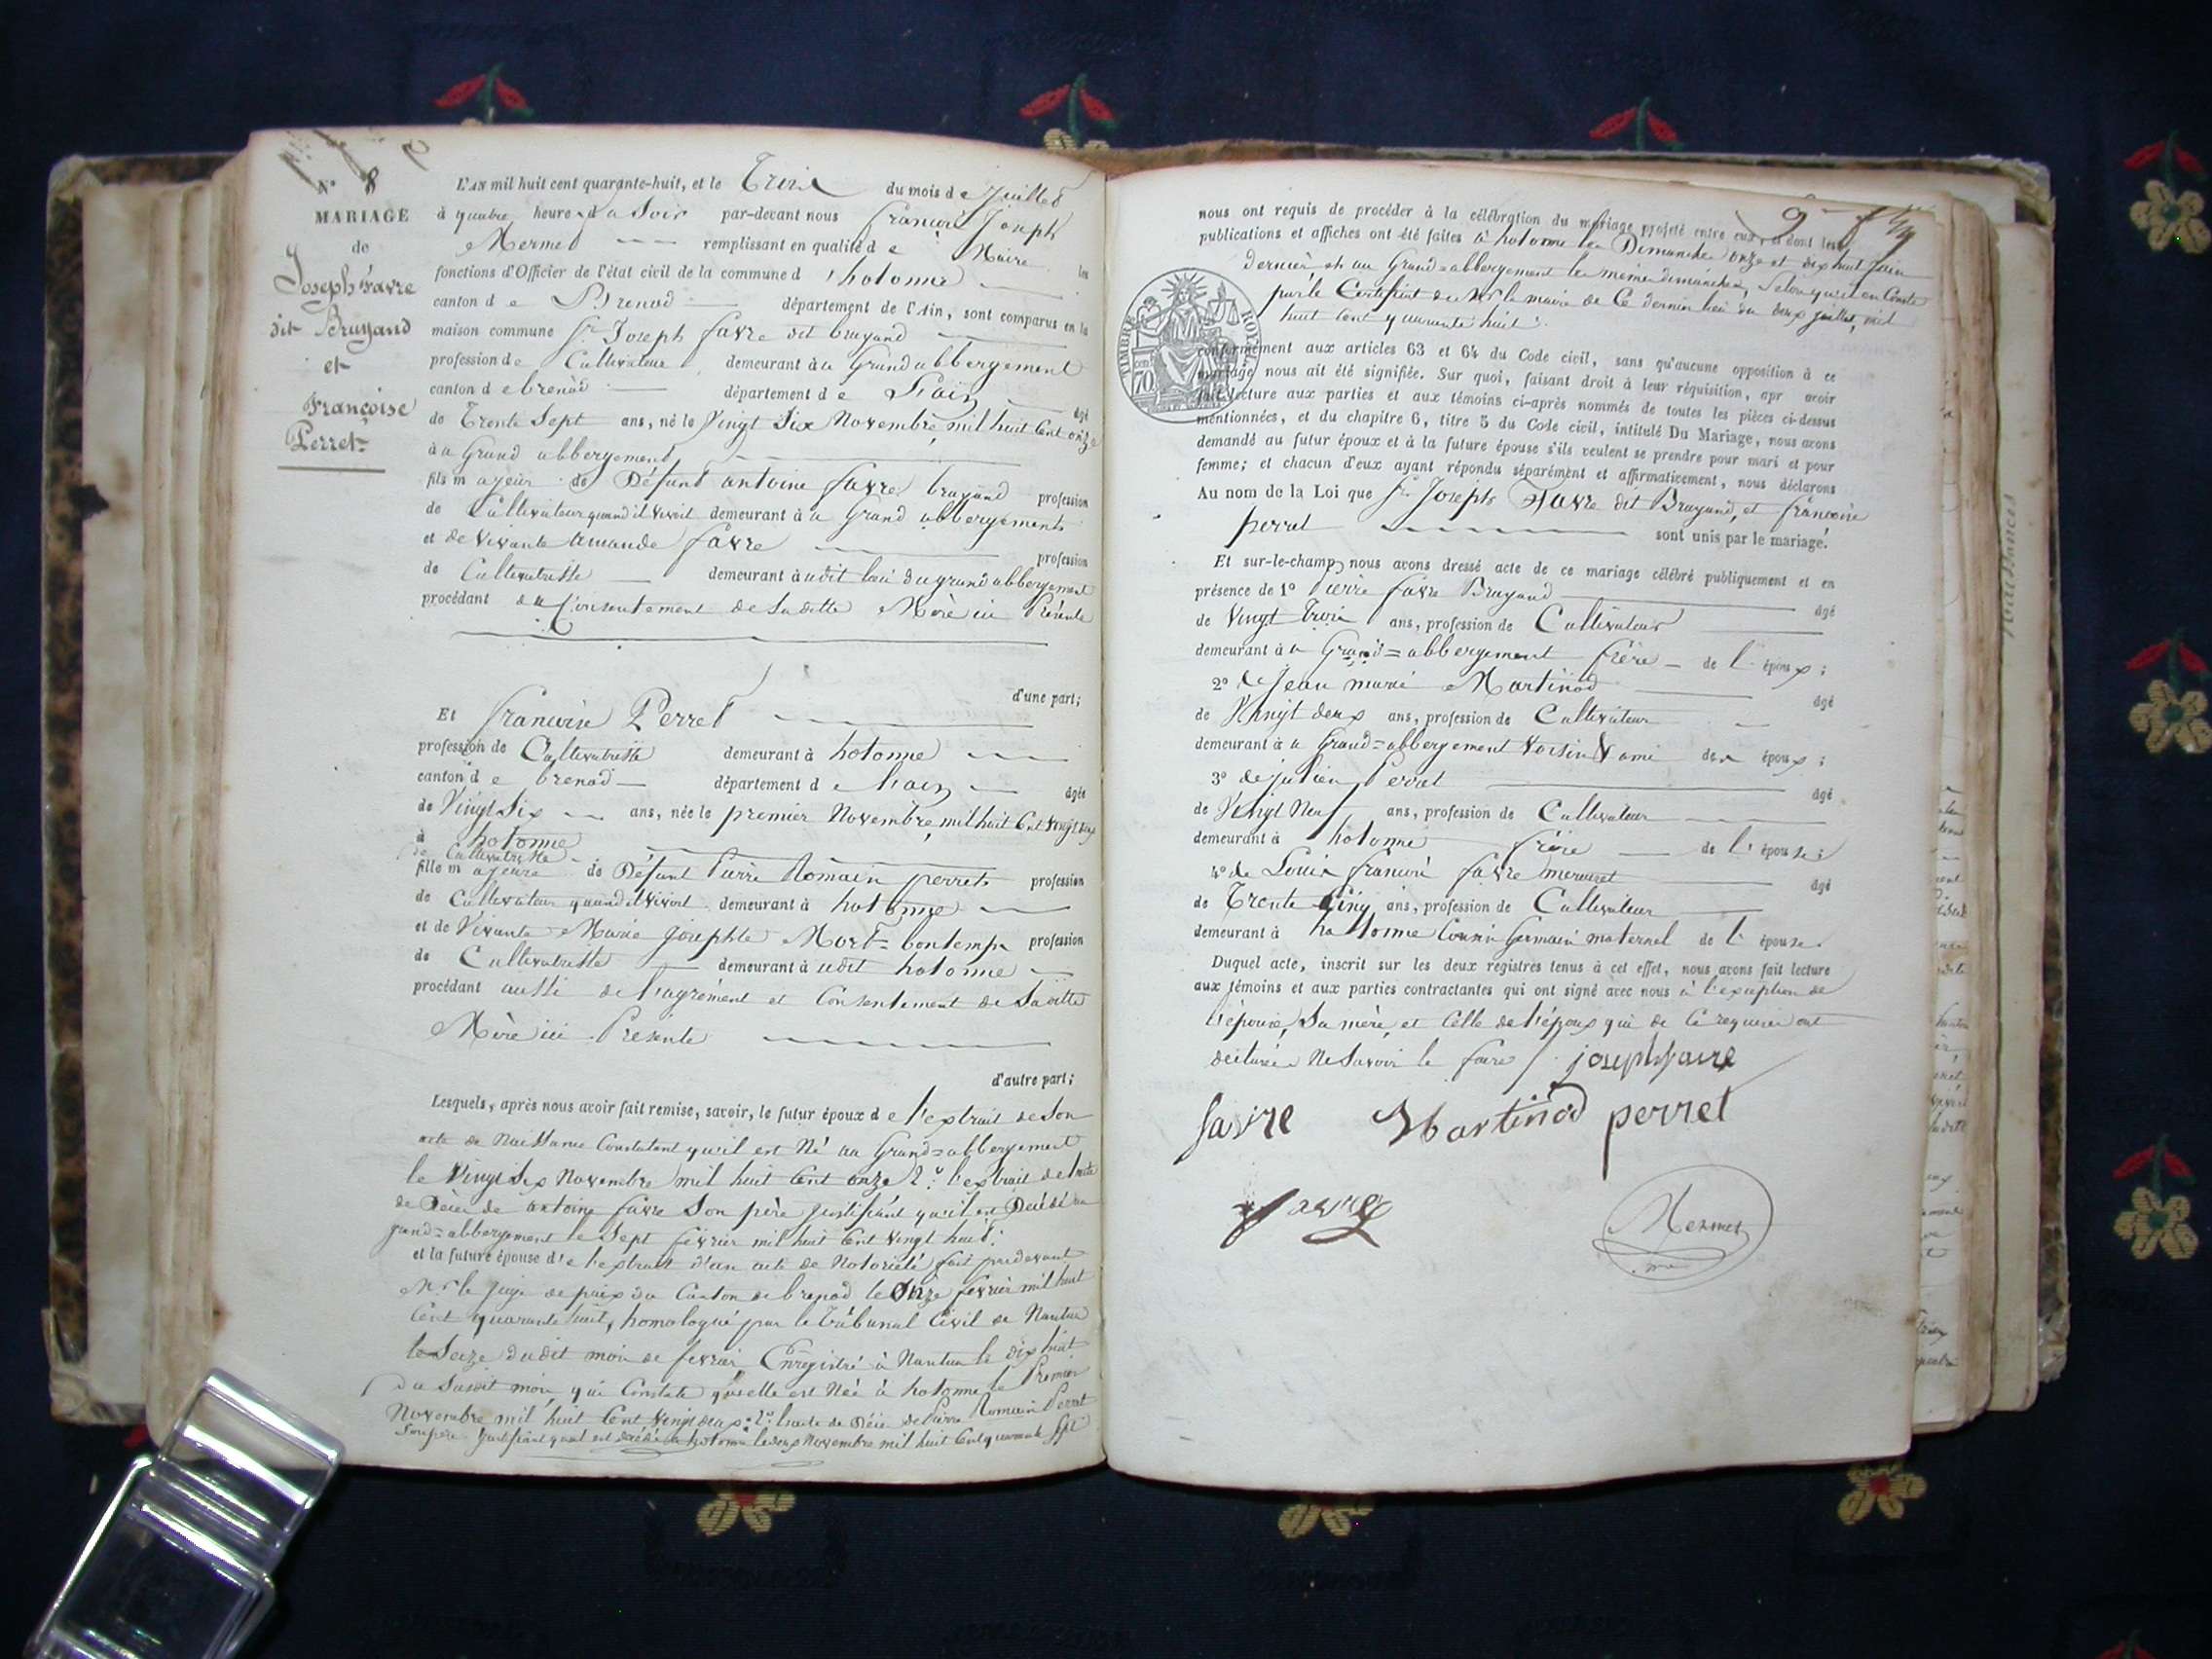 N° 8
MARIAGE
de
Joseph Favre
dit Bruyand
et
Françoise
Perret
L'AN mil huit cent quarante-huit, et le Treize du mois de Juillet
à quatre heures du Soir par-devant nous françois Joseph
Mermet remplissant en qualité de Maire les
fonctions d'Officier de l'état civil de la commune d'hotonne
canton de Brenod département de l'Ain, sont comparus en la
maison commune Sr Joseph favre dit bruyand
profession de Cultivateur demeurant à u Grand abbergement
canton de brenod département de L'ain âgé
de Trente Sept ans, né le Vingt Six Novembre mil huit Cent onze
à u Grand abbergement
fils majeur de Défunt antoine favre bruyand profession
de Cultivateur quand il Vivoit demeurant à u Grand abbergement
et de Vivante amande favre profession
de Cultivatrisse demeurant à udit lieu du grand abbergement
procédant du Consentement de Sa ditte Mère ici Présente
d'une part;
Et francoise Perret
profession de Cultivatrisse demeurant à hotonne
canton de brenod département de L'ain âgée
de Vingt Six ans, née le premier Novembre mil huit Cent Vingt deux
à hotonne
de Cultivatrisse
fille majeure de Défunt Pierre Romain perret profession
de Cultivateur quand il Vivoit demeurant à hotonne
et de Vivante Marie josephte Mort=bontemps profession
de Cultivatrisse demeurant à udit hotonne
procédant aussi de l'agrément et Consentement de Saditte
Mère ici Présente
d'autre part;
Lesquels, après nous avoir fait remise, savoir, le futur époux de l'extrait de Son
acte de Naissance Constatant qu'il est Né au Grand=abbergement
le Vingt Six Novembre mil huit Cent onze 2.° l'extrait de l'acte
de Décès de antoine favre Son père justifiant qu'il est Décédé au
grand=abbergement le Sept février mil huit Cent Vingt huit.
et la future épouse de l'extrait d'un acte de Notoriété fait pardevant
Mr le juge de paix du Canton de brenod le onze fevrier mil huit
Cent quarante huit, homologué par le Tribunal Civil de Nantua
le Seize dudit mois de fevrier, Enregistré à Nantua le dix huit
du Susdit mois, qui Constate qu'elle est Née à hotonne le Premier
Novembre mil huit Cent Vingt deux. 2.° l'acte de Décès de Pierre Romain Perret
Son père justifiant qu'il est décédé à hotonne le deux Novembre mil huit Cent quarante Sept
nous ont requis de procéder à la célébration du mariage projeté entre eux, et dont les
publications et affiches ont été faites à hotonne les Dimanches onze et dix huit juin
dernier, et au Grand=abbergement les mêmes dimanches, Selon qu'il en Conste
par le Certificat de Mr le maire de Ce dernier lieu du deux juillet, mil
huit Cent quarante huit.
TIMBRE ROYAL
70
conformément aux articles 63 et 64 du Code civil, sans qu'aucune opposition à ce
mariage nous ait été signifiée. Sur quoi, faisant droit à leur réquisition, apr avoir
fait lecture aux parties et aux témoins ci-après nommés de toutes les pièces ci-dessus
mentionnées, et du chapitre 6, titre 5 du Code civil, intitulé Du Mariage, nous avons
demandé au futur époux et à la future épouse s'ils veulent se prendre pour mari et pour
femme; et chacun d'eux ayant répondu séparément et affirmativement, nous déclarons
Au nom de la Loi que Sr Joseph Favre dit Bruyand, et françoise
perret sont unis par le mariage.
Et sur-le-champ nous avons dressé acte de ce mariage célébré publiquement et en
présence de 1° Pierre favre Bruyand âgé
de Vingt trois ans, profession de Cultivateur
demeurant à u Grand=abbergement frère de l' époux;
2° de jean marie Martinod âgé
de Vingt deux ans, profession de Cultivateur
demeurant à u Grand=abbergement Voisin & ami des époux;
3° de julien Perret âgé
de Vingt Neuf ans, profession de Cultivateur
demeurant à hotonne frère de l' épouse;
4° de Louis françois favre mercuret âgé
de Trente Cinq ans, profession de Cultivateur
demeurant à hottonne Cousin Germain maternel de l' épouse.
Duquel acte, inscrit sur les deux registres tenus à cet effet, nous avons fait lecture
aux témoins et aux parties contractantes qui ont signé avec nous à l'exception de
l'épouse, Sa mère, et Celle de l'époux qui de Ce requises ont
déclarées Ne Savoir le faire joseph favre
favre Martinod perret
favre Mermet